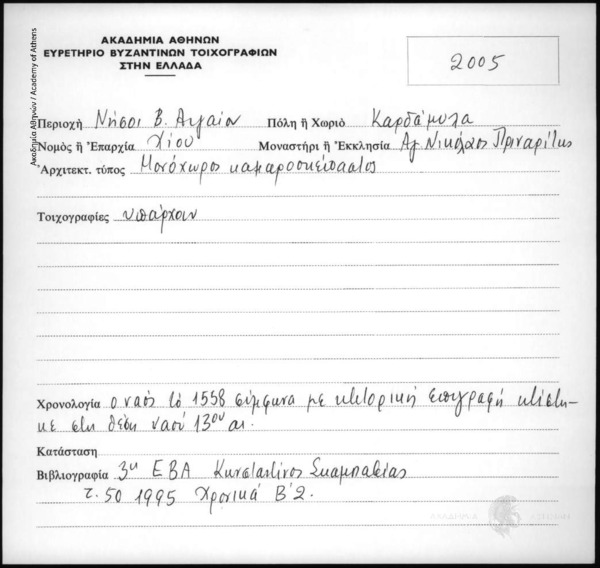 ΑΚΑΔΗΜΙΑ ΑΘΗΝΩΝ
ΕΥΡΕΤΗΡΙΟ ΒΥΖΑΝΤΙΝΩΝ ΤΟΙΧΟΓΡΑΦΙΩΝ
ΣΤΗΝ ΕΛΛΑΔΑ
2005
Ακαδημία Αθηνών / Academy of Athens
Περιοχή Νήσοι Β. Αιγαίου Πόλη ἤ Χωριό Καρδάμυλα
Νομός ἤ Ἐπαρχία Χίου Μοναστήρι ἤ Ἐκκλησία Αγ Νικόλαος Πριναρίτης
Ἀρχιτεκτ. τύπος Μονόχωρος καμαροσκέπαστος
Τοιχογραφίες υπάρχουν
Χρονολογία ο ναός το 1558 σύμφωνα με κτιτορική επιγραφή κτίστη-
κε στη θέση ναού 13ου αι.
Κατάσταση
Βιβλιογραφία 3η ΕΒΑ Κωνσταντίνος Σκαμπαβίας
τ. 50 1995 Χρονικά Β'2.
ΑΚΑΔΗΜΙΑ ΑΘΗΝΩΝ